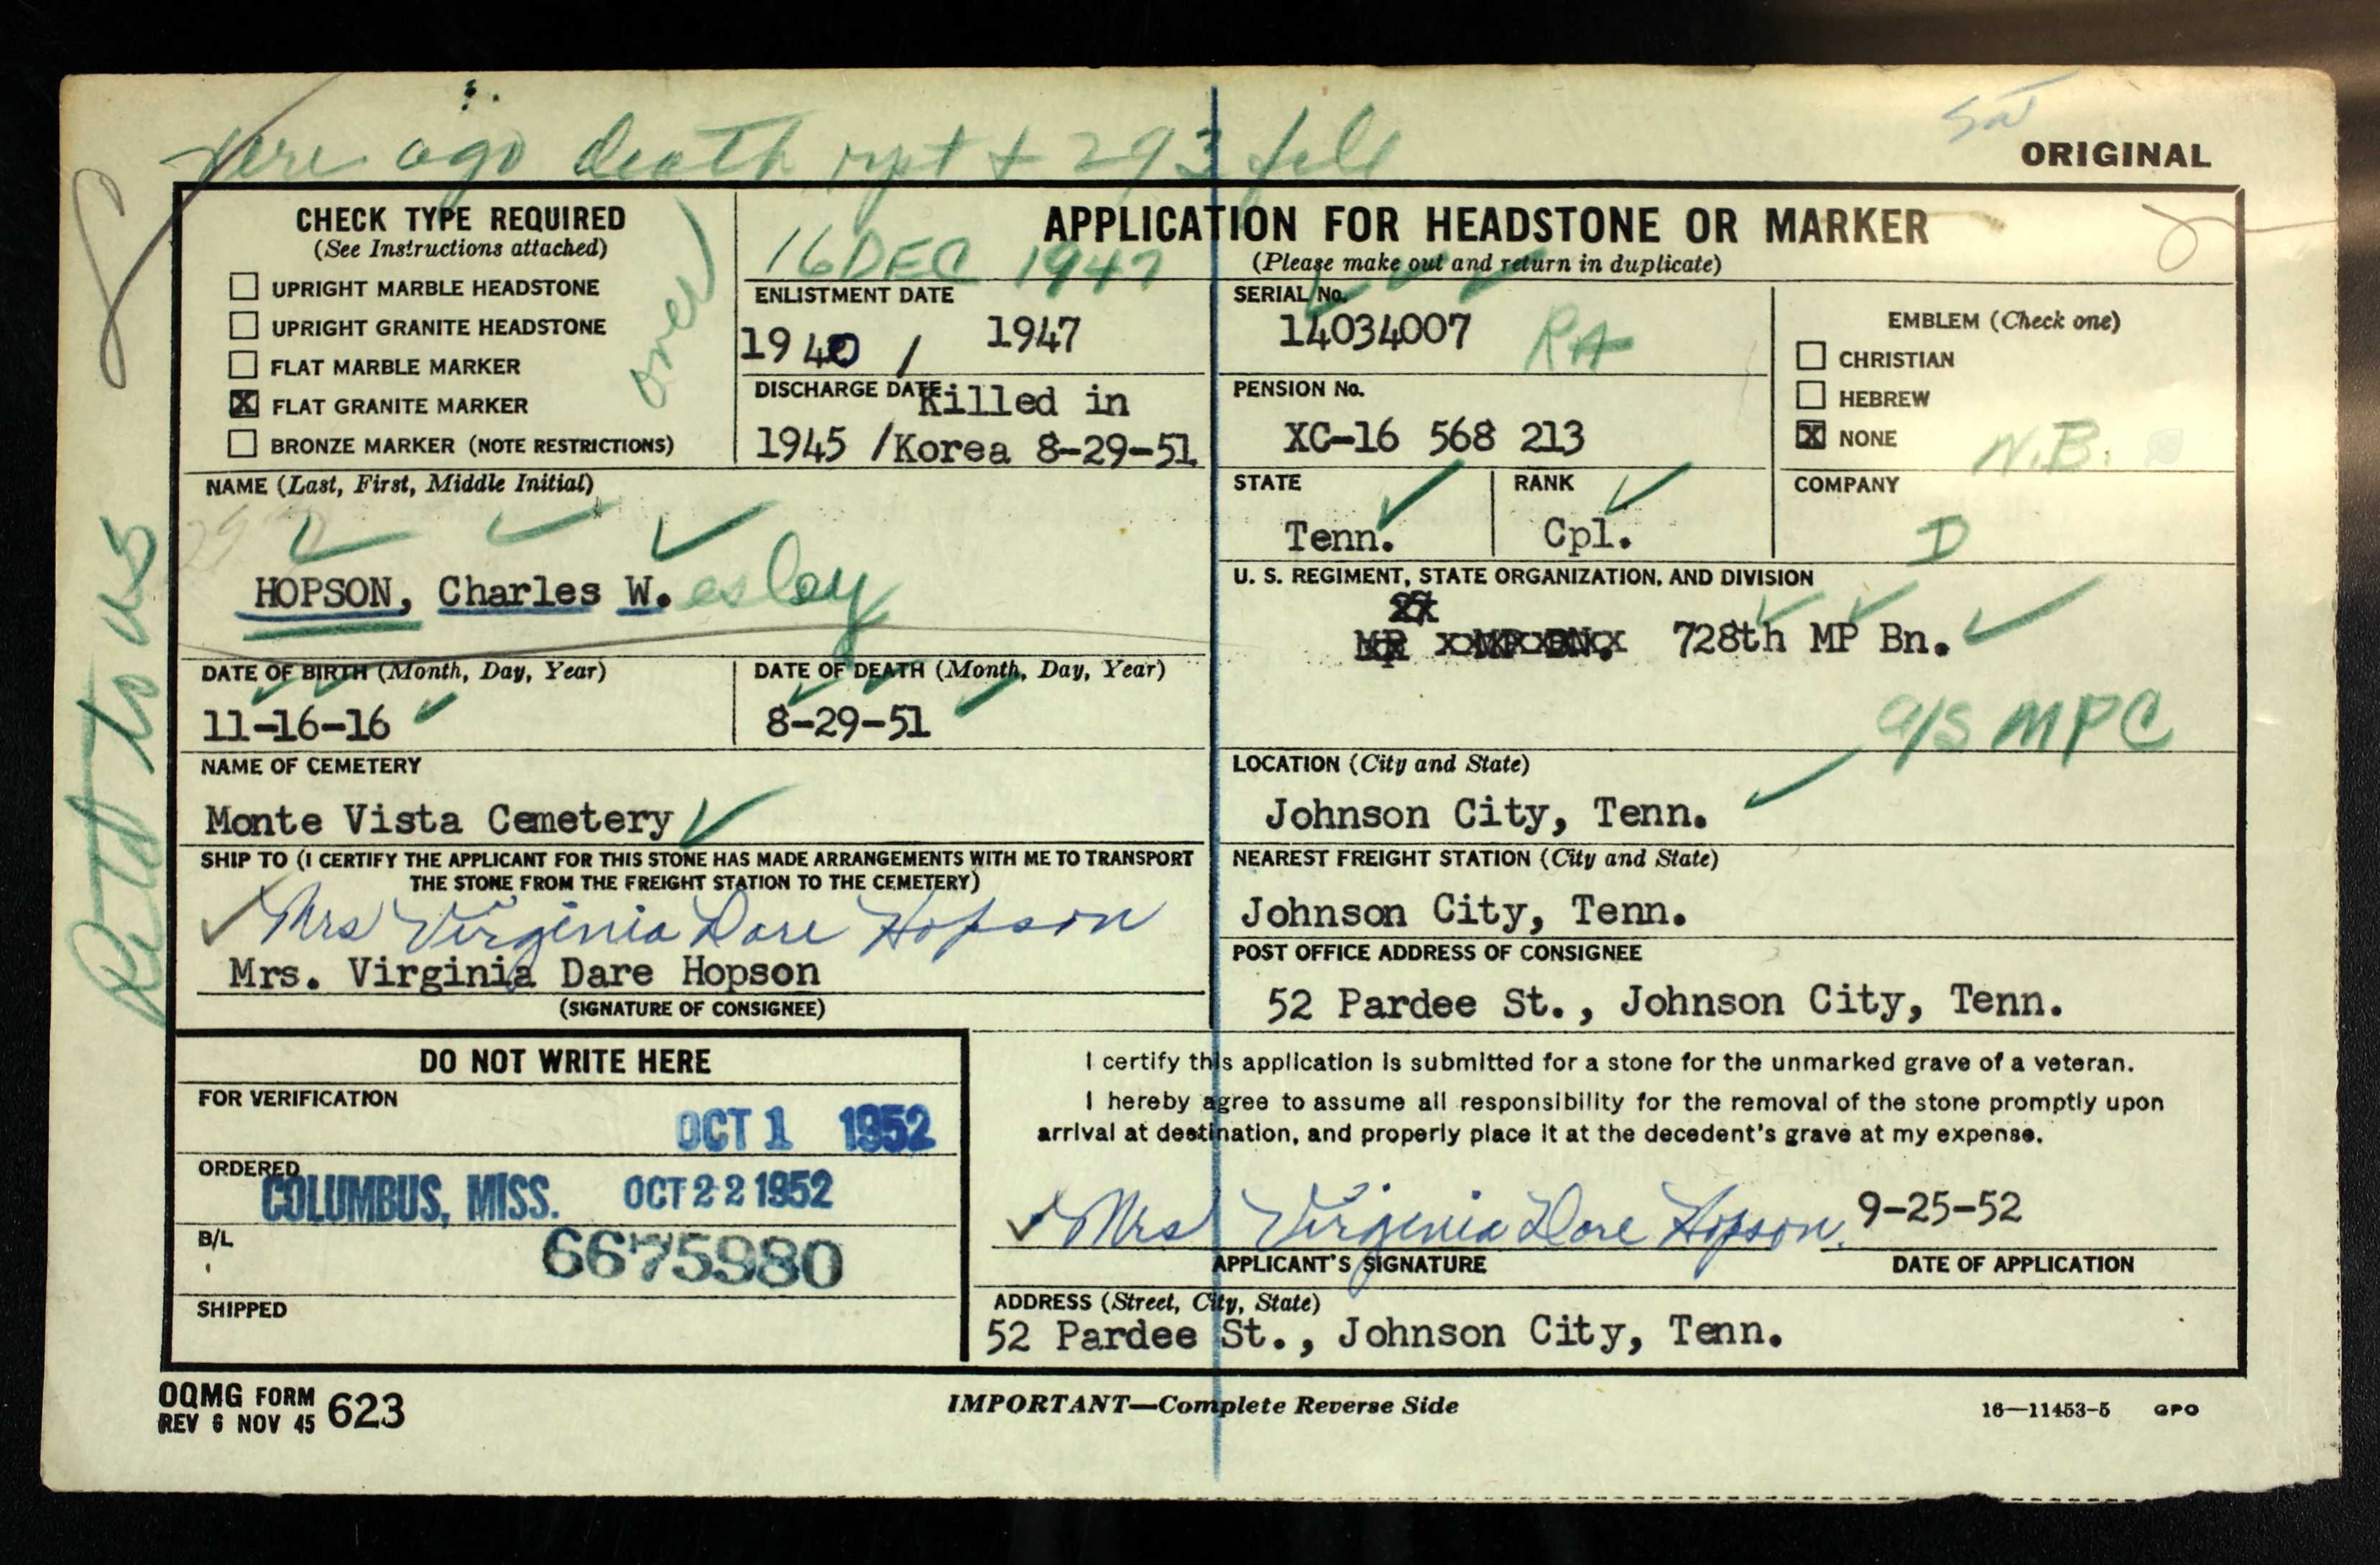 ago death rpt + 293 file
ORIGINAL
CHECK TYPE REQUIRED
(See Instructions attached)
UPRIGHT MARBLE HEADSTONE
UPRIGHT GRANITE HEADSTONE
FLAT MARBLE MARKER
X FLAT GRANITE MARKER
BRONZE MARKER (NOTE RESTRICTIONS)
over)
16 DEC 1947
ENLISTMENT DATE
1940 / 1947
DISCHARGE DATE Killed in
1945 /Korea 8-29-51
APPLICATION FOR HEADSTONE OR MARKER
(Please make out and return in duplicate)
SERIAL No.
14034007 RA
PENSION No.
XC-16 568 213
EMBLEM (Check one)
CHRISTIAN
HEBREW
X NONE
N.B.
NAME (Last, First, Middle Initial)
HOPSON, Charles W.esley
STATE
Tenn.
RANK
Cpl.
COMPANY
D
U. S. REGIMENT, STATE ORGANIZATION, AND DIVISION
728th MP Bn.
a/s MPC
DATE OF BIRTH (Month, Day, Year)
11-16-16
DATE OF DEATH (Month, Day, Year)
8-29-51
NAME OF CEMETERY
Monte Vista Cemetery
LOCATION (City and State)
Johnson City, Tenn.
SHIP TO (I CERTIFY THE APPLICANT FOR THIS STONE HAS MADE ARRANGEMENTS WITH ME TO TRANSPORT
THE STONE FROM THE FREIGHT STATION TO THE CEMETERY)
Mrs Virginia Dare Hopson
Mrs. Virginia Dare Hopson
(SIGNATURE OF CONSIGNEE)
NEAREST FREIGHT STATION (City and State)
Johnson City, Tenn.
POST OFFICE ADDRESS OF CONSIGNEE
52 Pardee St., Johnson City, Tenn.
Retd to us
DO NOT WRITE HERE
FOR VERIFICATION
OCT 1 1952
ORDERED
COLUMBUS, MISS. OCT 22 1952
B/L
6675980
SHIPPED
I certify this application is submitted for a stone for the unmarked grave of a veteran.
I hereby agree to assume all responsibility for the removal of the stone promptly upon
arrival at destination, and properly place it at the decedent's grave at my expense.
Mrs Virginia Dare Hopson. 9-25-52
APPLICANT'S SIGNATURE DATE OF APPLICATION
ADDRESS (Street, City, State)
52 Pardee St., Johnson City, Tenn.
OQMG FORM 623
REV 6 NOV 45
IMPORTANT—Complete Reverse Side
16—11453-5 GPO